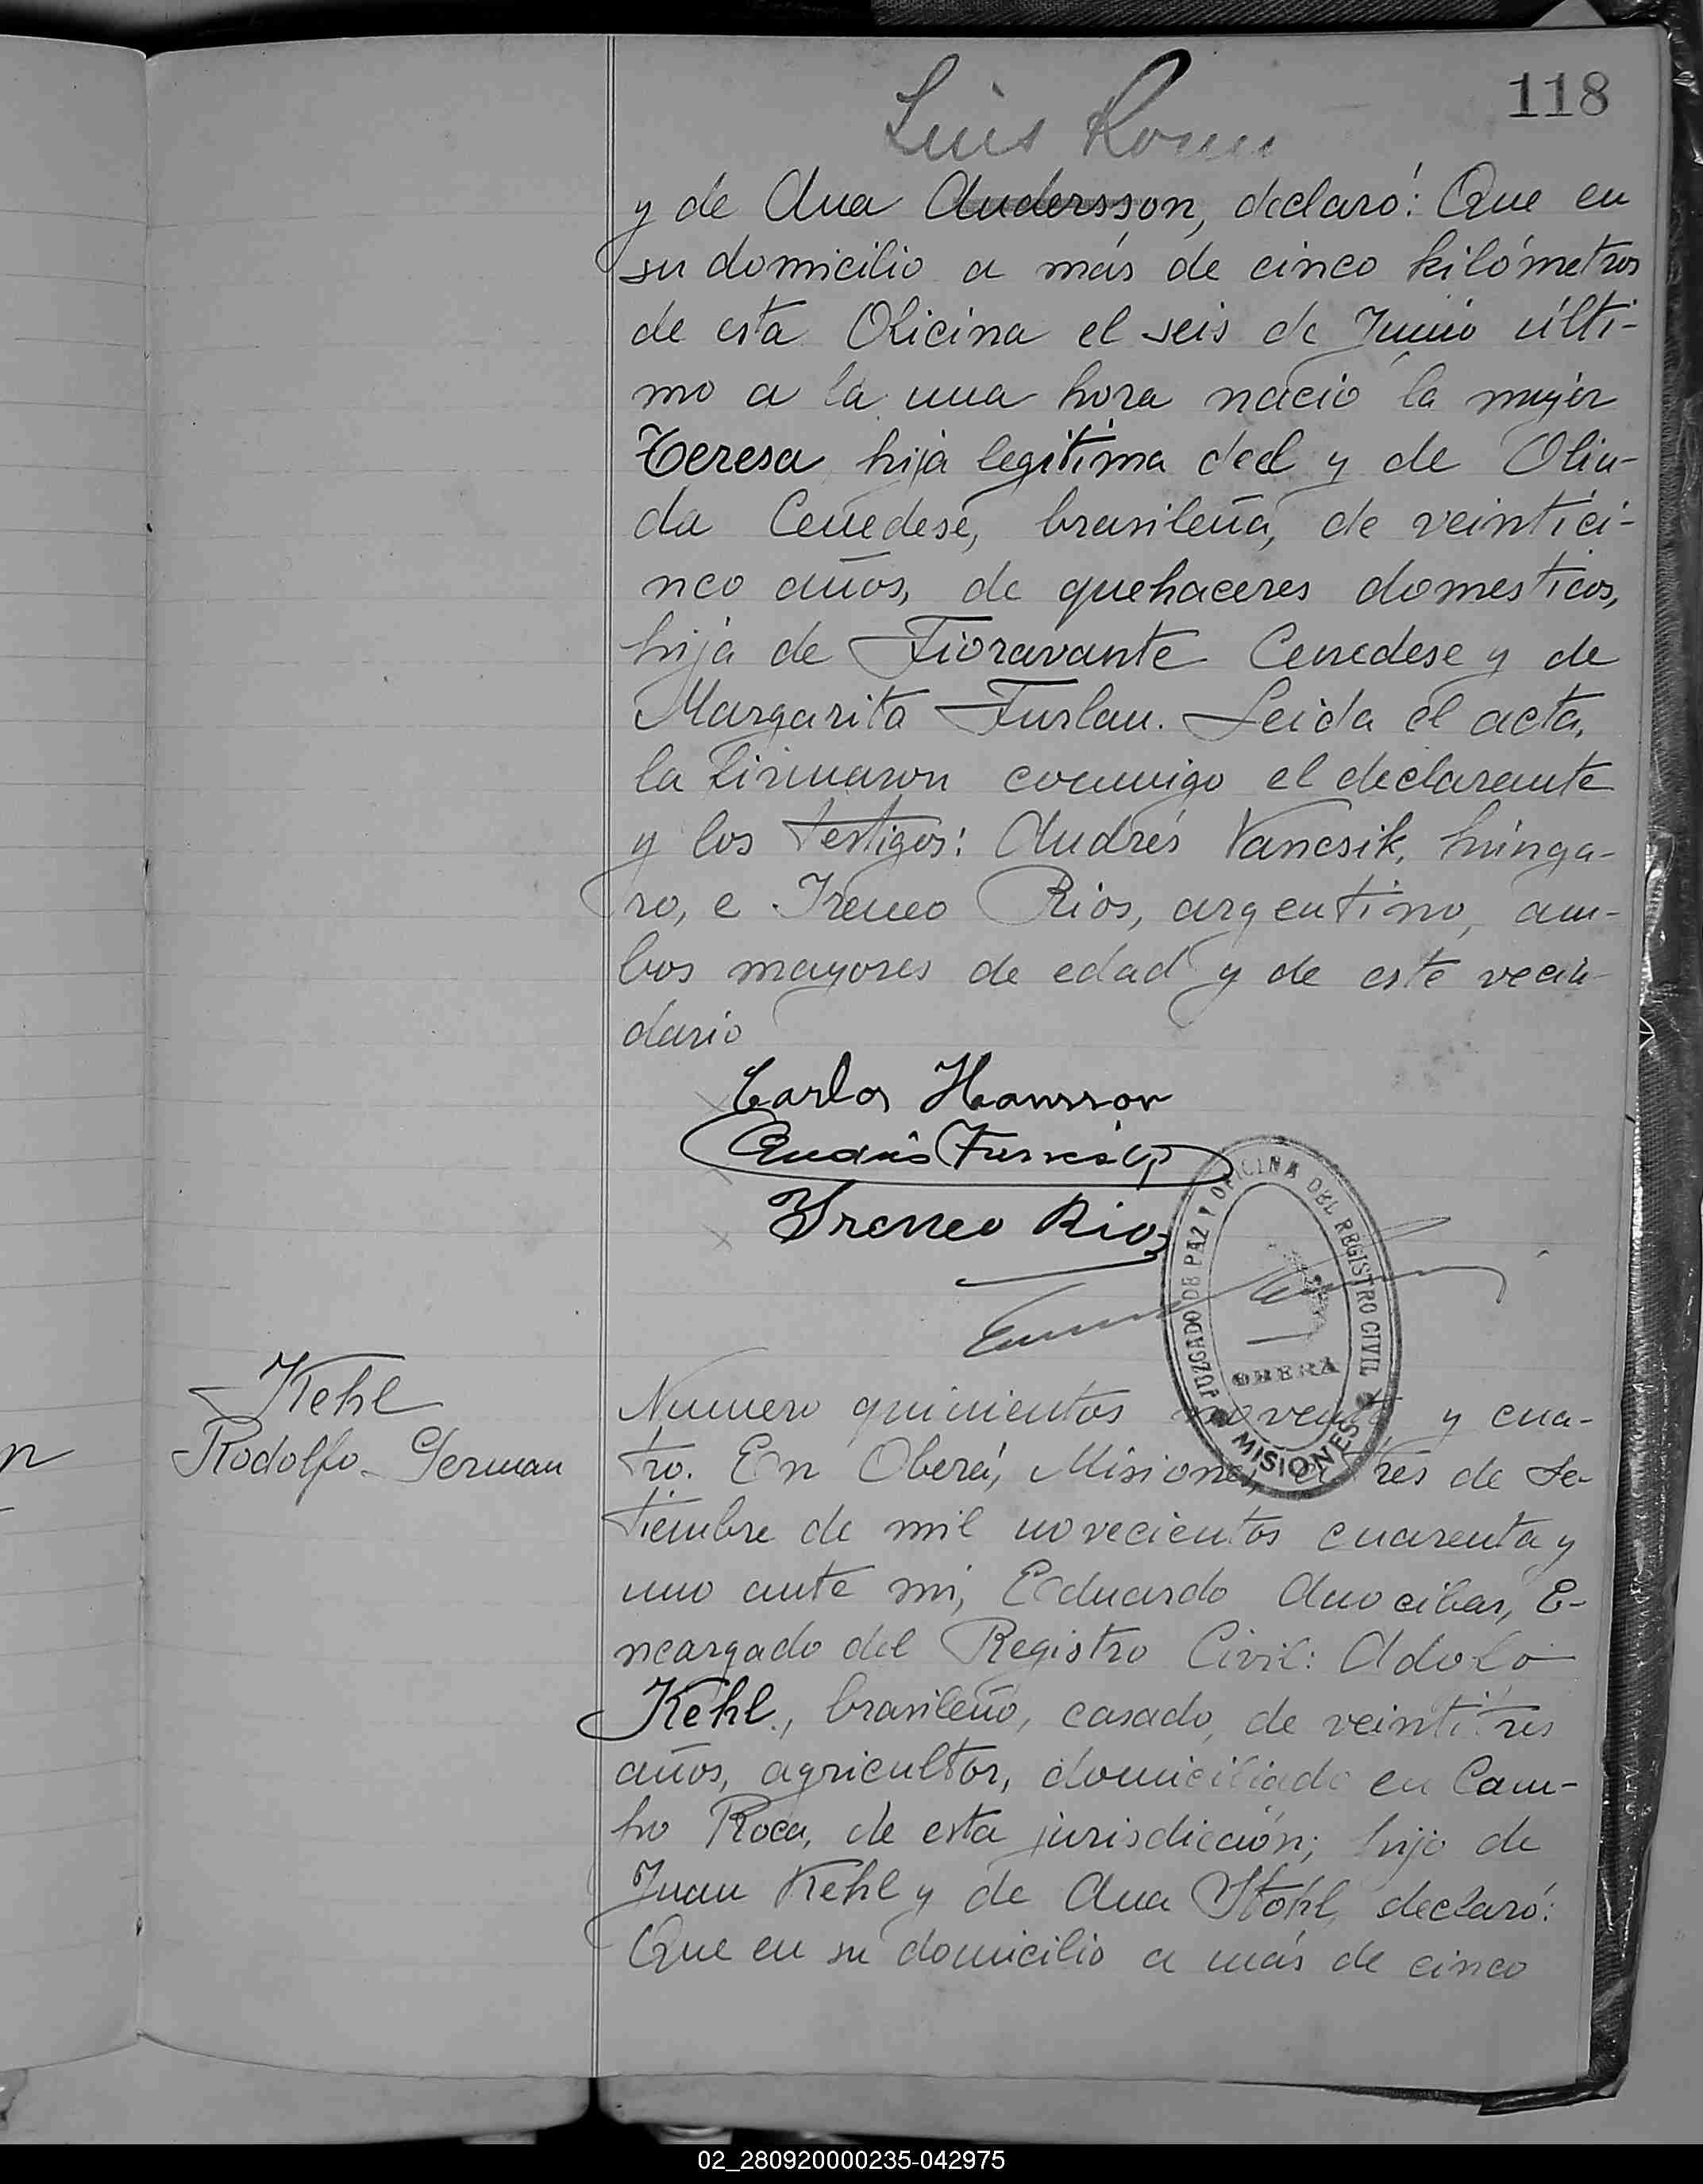 118
Luis
y de Ana Andersson, declaró: Que en
su domicilio a más de cinco kilómetros
de esta Oficina el seis de Junio últi-
mo a la una hora nació la mujer
Teresa hija legítima del y de Olin-
da Cenedese, brasileña, de veintici-
nco años, de quehaceres domesticos,
hija de Fioravante Cenedese y de
Margarita Furlan. Leida el acta,
la firmaron conmigo el declarante
y los testigos: Andrés Vancsik, húnga-
ro, e Ireneo Rios, argentino, am-
bos mayores de edad y de este vecin-
dario
Carlos Hansson
Ireneo Rios
JUZGADO DE PAZ Y OFICINA DEL REGISTRO CIVIL
OBERA
MISIONES
Kehl
Rodolfo German
n
Numero quinientos noventa y cua-
tro. En Oberá, Misiones, a tres de Se-
tiembre de mil novecientos cuarenta y
uno ante mi, Eduardo Anocibar, E-
ncargado del Registro Civil: Adolfo
Kehl, brasileño, casado, de veintitres
años, agricultor, domiciliado en Cam-
po Roca, de esta jurisdicción; hijo de
Juan Kehl y de Ana Stohl, declaró:
Que en su domicilio a más de cinco
02_280920000235-042975